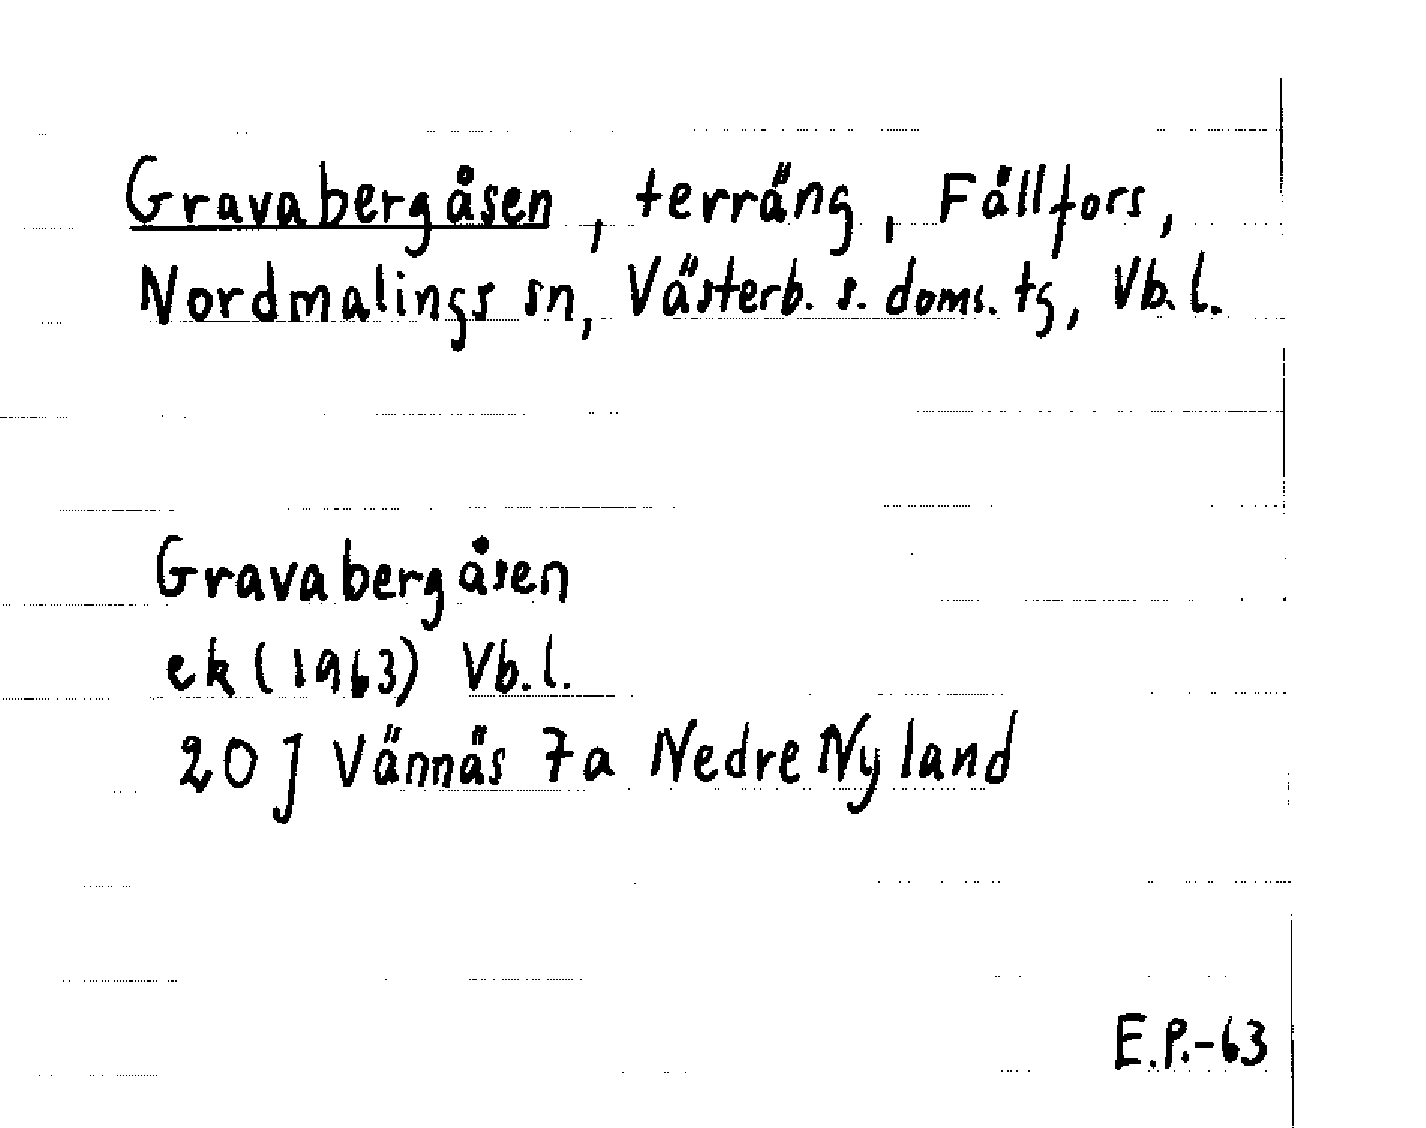 Gravabergåsen, terräng, Fållfors,
Nordmalings sn, Västerb. s. doms. tg, Vb. l.
Gravabergåsen
ek (1963) Vb. l.
20 J Vännäs 7a Nedre Nyland
E.P.-63